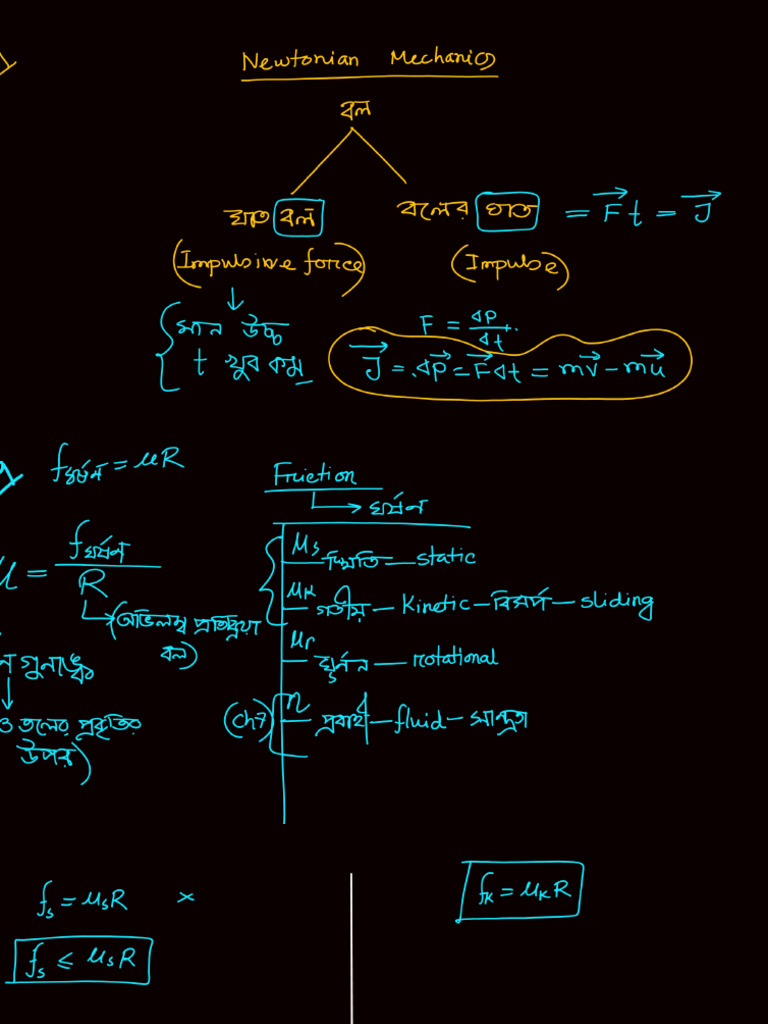 Newtonian Mechanics
বল
ঘাত বল
বলের ঘাত = F t = J
(Impulsive force)
(Impulse)
মান উচ্চ
t খুব কম
F = ΔP/Δt
J = ΔP = FΔt = mv - mu
fঘর্ষণ = μR
μ = fঘর্ষণ / R
(অভিলম্ব প্রতিক্রিয়া বল)
গুনাঙ্ক
ও তলের প্রকৃতির
উপর)
Friction
ঘর্ষন
μs স্থিতি - static
μk গতীয় - Kinetic - বিসর্প - sliding
μr ঘূর্নন - rotational
(ch7) η প্রবাহী - fluid - সান্দ্রতা
fs = μsR ×
fs ≤ μsR
fk = μkR